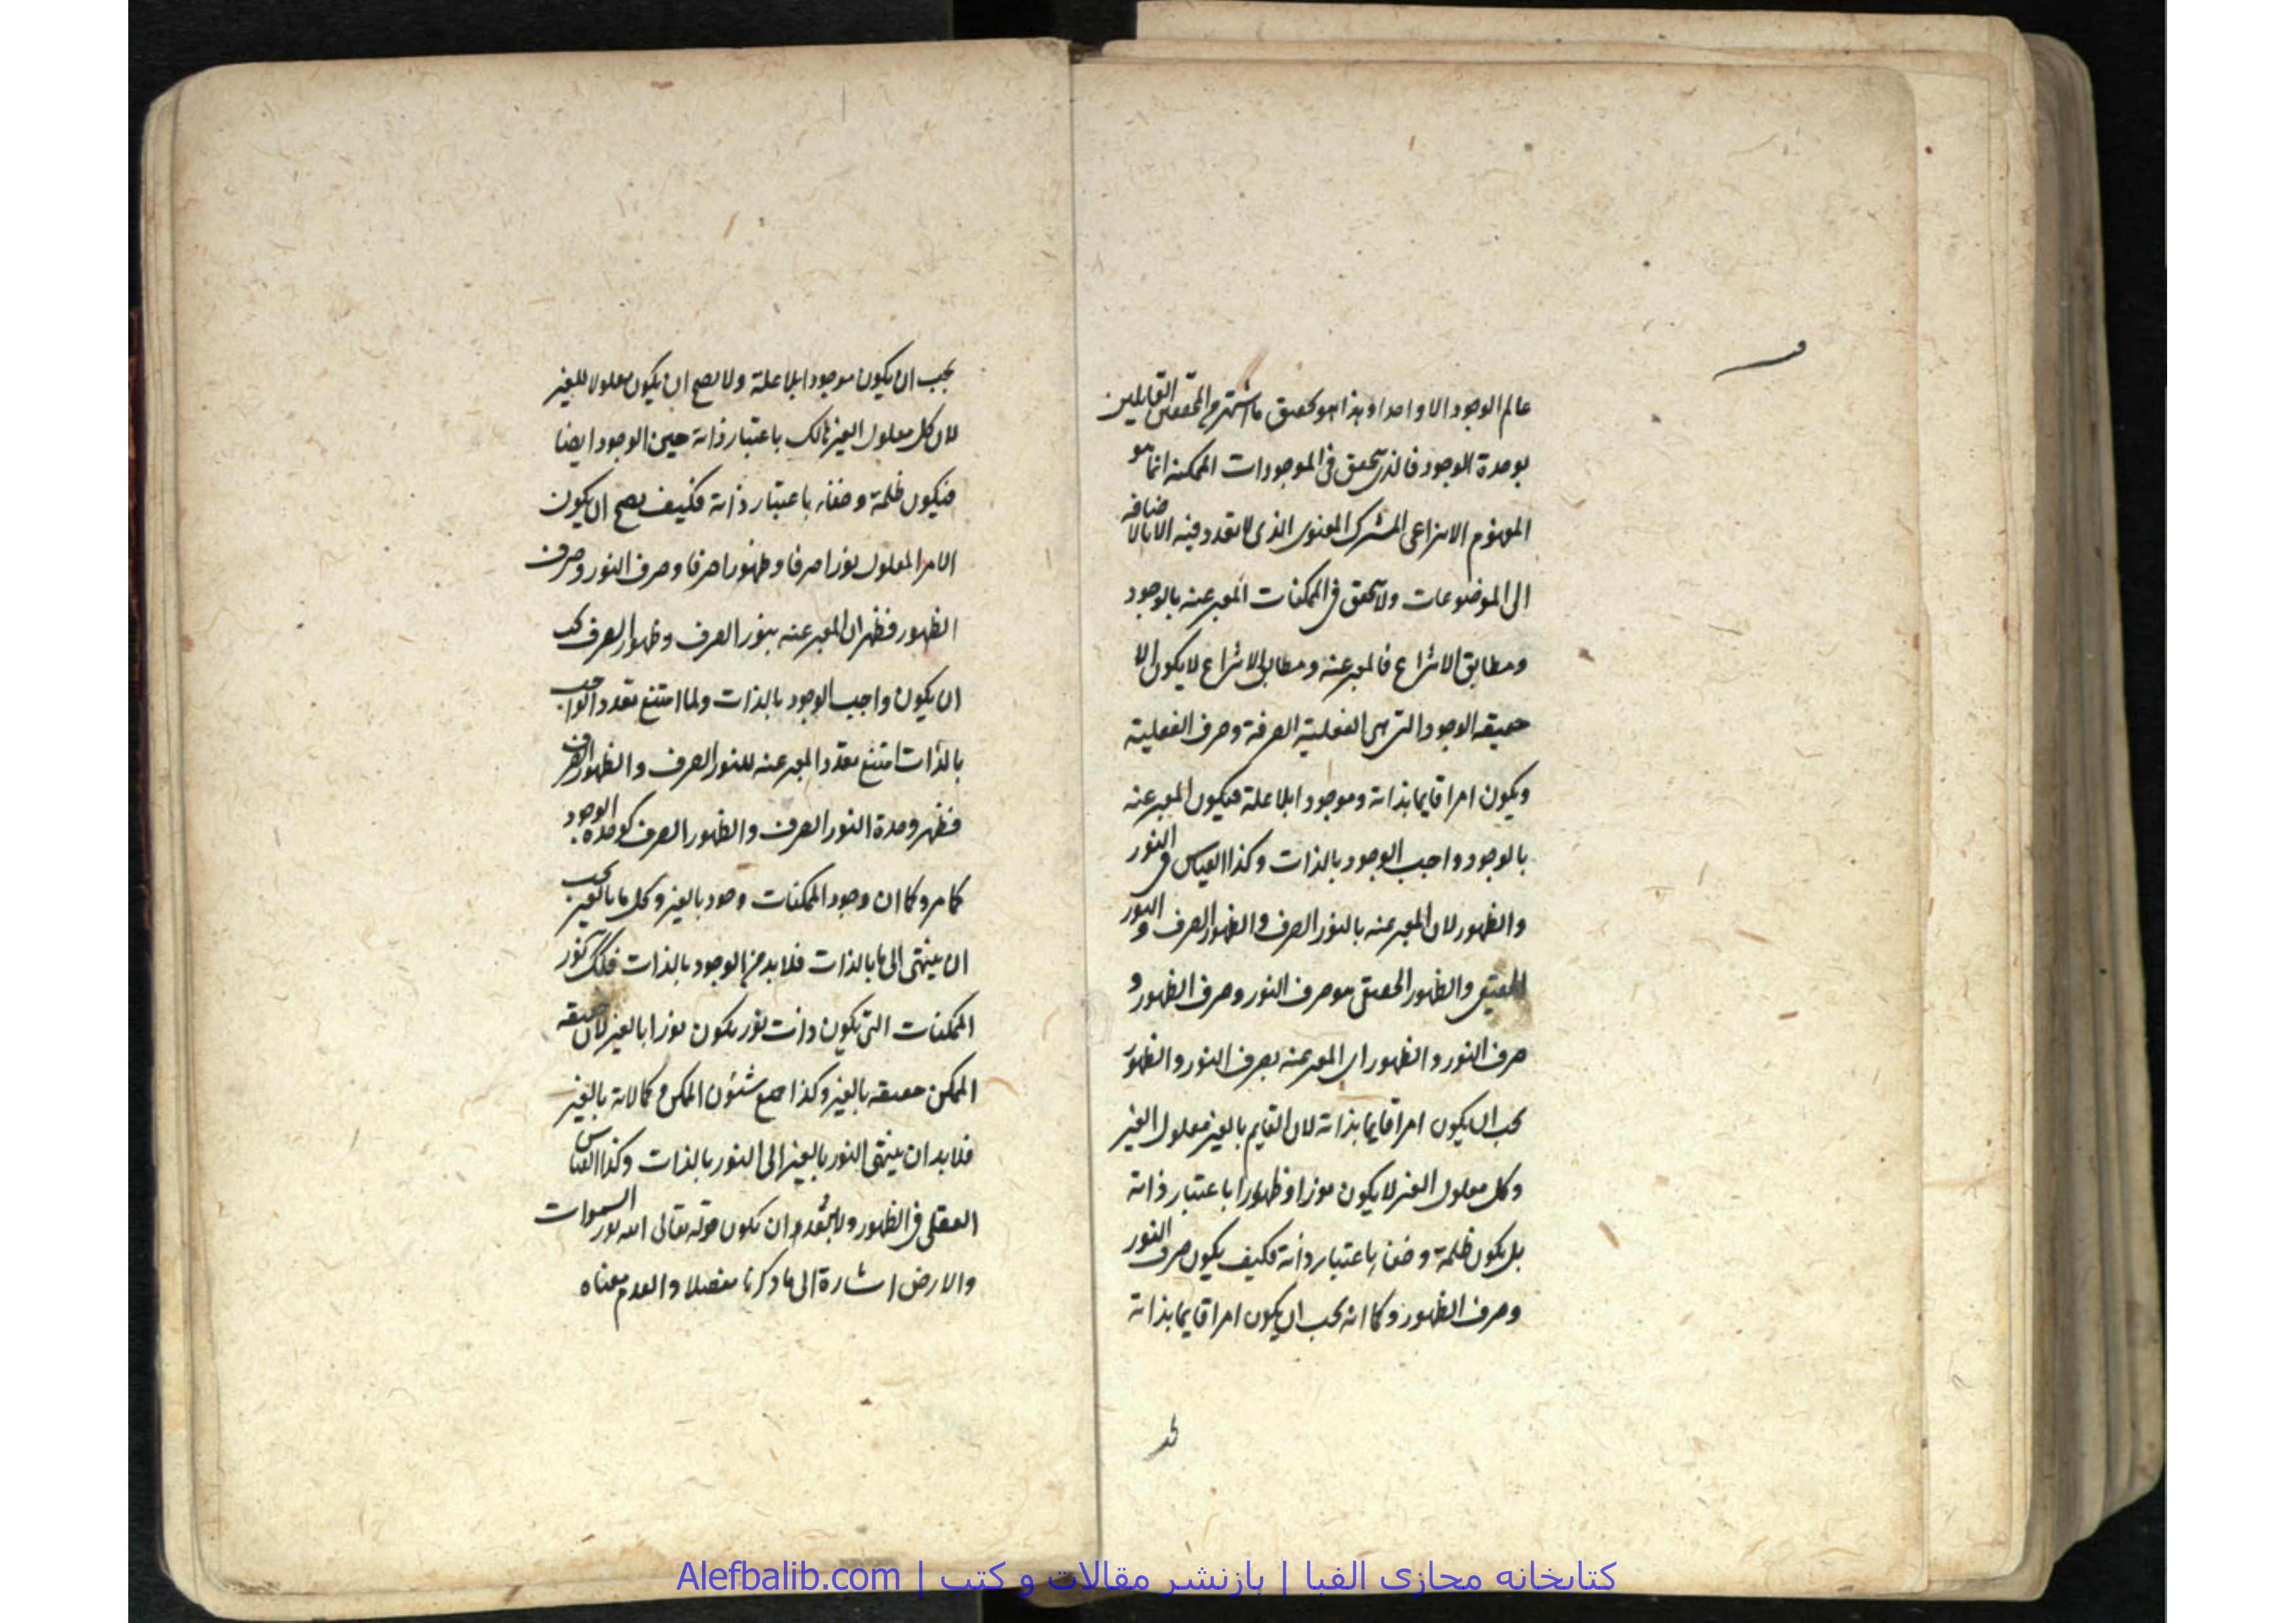 عالم الوجود الا واحدا و هذا هو تحقيق ما اشتهر من المحققين القايلين
بوحدة الوجود فالذى تحقق فى الموجودات الممكنة انما هو
المفهوم الانتزاعى المشترك المعنوى الذى لا تعدد فيه الا بالاضافة
الى الموضوعات ولا تحقق فى الممكنات المعبر عنه بالوجود
ومطابق الانتزاع فالمعبر عنه ومطابق الانتزاع لا يكون الا
حقيقة الوجود التى هى الفعلية الصرفة وصرف الفعلية
ويكون امرا قايما بذاته وموجودا بلا علة فيكون المعبر عنه
بالوجود واجب الوجود بالذات وكذا القياس فى النور
والظهور لان المعبر عنه بالنور الصرف والظهور الصرف والنور
الحقيقى والظهور الحقيقى هو صرف النور وصرف الظهور و
صرف النور والظهور اى المعبر عنه بصرف النور والظهور
يجب ان يكون امرا قايما بذاته لان القايم بالغير معلول الغير
وكل معلول الغير لا يكون نورا وظهورا باعتبار ذاته
بل يكون ظلمة وخفاء باعتبار ذاته فكيف يكون صرف النور
وصرف الظهور وكما انه يجب ان يكون امرا قايما بذاته
يجب ان يكون موجودا بلا علة ولا يصح ان يكون معلولا للغير
لان كل معلول الغير هالك باعتبار ذاته حين الوجود ايضا
فيكون ظلمة وخفاء باعتبار ذاته فكيف يصح ان يكون
الامر المعلول نورا صرفا وظهورا صرفا وصرف النور وصرف
الظهور فظهر ان المعبر عنه بنور الصرف وظهور الصرف يجب
ان يكون واجب الوجود بالذات ولما امتنع تعدد الواجب
بالذات امتنع تعدد المعبر عنه للنور الصرف والظهور الصرف
فظهر وحدة النور الصرف والظهور الصرف كوحدة الوجود
كما مر وكما ان وجود الممكنات وجود بالغير وكل ما بالغير يجب
ان ينتهى الى ما بالذات فلا بد من الوجود بالذات فكذلك نور
الممكنات التى يكون ذات نور يكون نورا بالغير لان حقيقة
الممكن حقيقة بالغير وكذا جميع شئون الممكن وكمالاته بالغير
فلا بد ان ينتهى النور بالغير الى النور بالذات وكذا القياس
العقلى فى الظهور ولا يبعد ان يكون قوله تعالى الله نور السموات
والارض اشارة الى ما ذكرنا مفصلا والعدم معناه
کتابخانه مجازی الفبا | بازنشر مقالات و کتب | Alefbalib.com